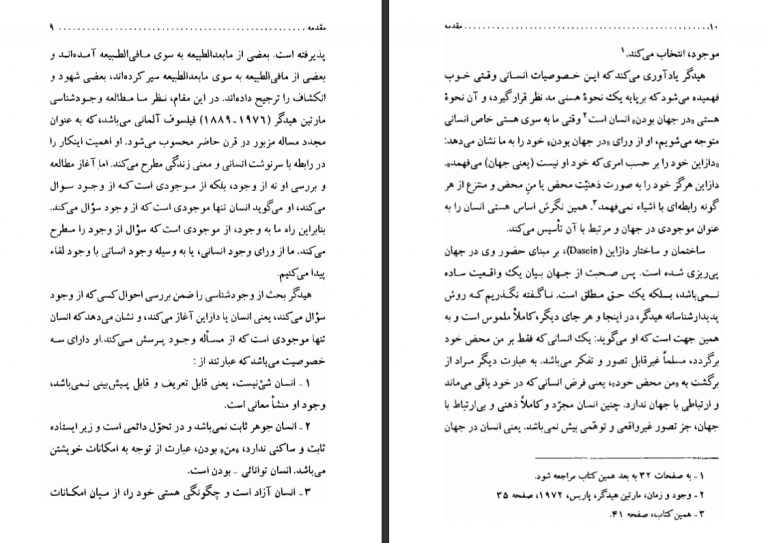 مقدمه ........................................................ ۹
پذیرفته است. بعضی از مابعدالطبیعه به سوی مافی‌الطبیعه آمده‌اند و
بعضی از مافی‌الطبیعه به سوی مابعدالطبیعه سیر کرده‌اند، بعضی شهود و
انکشاف را ترجیح داده‌اند. در این مقام، نظر ما مطالعه وجودشناسی
مارتین هیدگر (۱۹۷۶-۱۸۸۹) فیلسوف آلمانی می‌باشد، که به عنوان
مجدد مساله مزبور در قرن حاضر محسوب می‌شود. او اهمیت اینکار را
در رابطه با سرنوشت انسانی و معنی زندگی مطرح می‌کند. اما آغاز مطالعه
و بررسی او نه از وجود، بلکه از موجودی است که از وجود سوال
می‌کند، او می‌گوید انسان تنها موجودی است که از وجود سؤال می‌کند.
بنابراین راه ما به وجود، از موجودی است که سؤال از وجود را مطرح
می‌کند. ما از ورای وجود انسانی، یا به وسیله وجود انسانی با وجود لقاء
پیدا می‌کنیم.
هیدگر بحث از وجودشناسی را ضمن بررسی احوال کسی که از وجود
سؤال می‌کند، یعنی انسان یا دازاین آغاز می‌کند، و نشان می‌دهد که انسان
تنها موجودی است که از مسأله وجود پرسش می‌کند. او دارای سه
خصوصیت می‌باشد که عبارتند از :
۱ - انسان شئ نیست، یعنی قابل تعریف و قابل پیش‌بینی نمی‌باشد،
وجود او منشأ معانی است.
۲ - انسان جوهر ثابت نمی‌باشد و در تحوّل دائمی است و زیر ایستاده
ثابت و ساکنی ندارد، «من» بودن، عبارت از توجه به امکانات خویشتن
می‌باشد. انسان توانائی - بودن است.
۳ - انسان آزاد است و چگونگی هستی خود را، از میان امکانات
۱۰ ........................................................ مقدمه
موجود، انتخاب می‌کند.۱
هیدگر یادآوری می‌کند که این خصوصیات انسانی وقتی خوب
فهمیده می‌شود که برپایه یک نحوهٔ هستی مد نظر قرار گیرد، و آن نحوهٔ
هستی «در جهان بودن» انسان است۲ وقتی ما به سوی هستی خاص انسانی
متوجه می‌شویم، او از ورای «در جهان بودن» خود را به ما نشان می‌دهد:
«دازاین خود را بر حسب امری که خود او نیست (یعنی جهان) می‌فهمد».
دازاین هرگز خود را به صورت ذهنیّت محض یا من محض و منتزع از هر
گونه رابطه‌ای با اشیاء نمی‌فهمد.۳ همین نگرش اساس هستی انسان را به
عنوان موجودی در جهان و مرتبط با آن تأسیس می‌کند.
ساختمان و ساختار دازاین (Dasein)، بر مبنای حضور وی در جهان
پی‌ریزی شده است. پس صحبت از جهان بیان یک واقعیت ساده
نمی‌باشد، بلکه یک حق مطلق است. ناگفته نگذریم که روش
پدیدارشناسانه هیدگر، در اینجا و هر جای دیگر، کاملاً ملموس است و به
همین جهت است که او می‌گوید: یک انسانی که فقط بر من محض خود
برگردد، مسلماً غیرقابل تصور و تفکر می‌باشد. به عبارت دیگر مراد از
برگشت به «من محض خود»، یعنی فرض انسانی که در خود باقی می‌ماند
و ارتباطی با جهان ندارد. چنین انسان مجرّد و کاملاً ذهنی و بی‌ارتباط با
جهان، جز تصور غیرواقعی و توهّمی بیش نمی‌باشد. یعنی انسان در جهان
۱ - به صفحات ۳۲ به بعد همین کتاب مراجعه شود.
۲ - وجود و زمان، مارتین هیدگر، پاریس، ۱۹۷۲، صفحه ۳۵
۳ - همین کتاب، صفحه ۴۱.